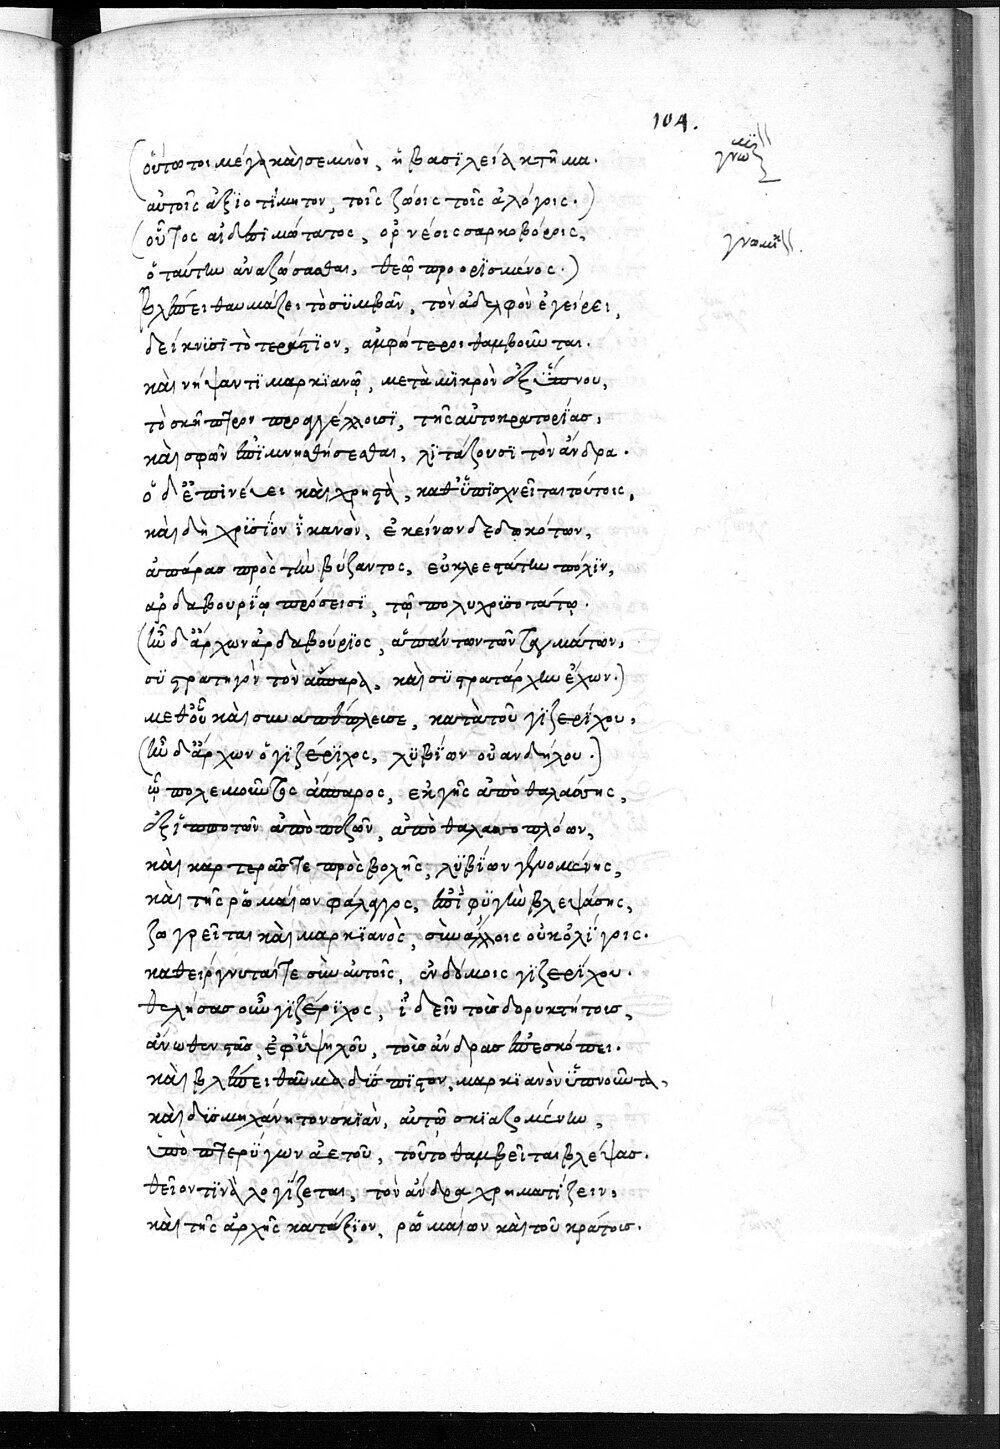 104.
γνωμϊ
οὕτω τοι μέγα καὶ σεμνὸν, ἡ βασϊλεία κτῆμα.
αὐτοῖς ἀξϊοτίμητον, τοῖς ζώοις τοῖς ἀλόγοις.)
(οὗτος αἰδεσιμώτατος, ὀρνέοις σαρκοβόροις,
γνωμϊ.
ὁ ταύτην ἀναζώσασθαι, θεῷ προορϊσμένος.)
βλέπει θαυμάζει τὸ σϋμβὰν, τὸν ἀδελφὸν ἐγείρει,
δείκνϋσι τὸ τεράστιον, ἀμφότεροι θαμβοῦνται.
καὶ νήψαντϊ μαρκϊανῷ, μετὰ μϊκρὸν ἐξ ὕπνου,
τὸ σκῆπτρον προαγγέλλουσϊ, τῆς αὐτοκρατορίας,
καὶ σφῶν ἐπϊμνησθήσεσθαι, λϊτάζουσϊ τὸν ἄνδρα.
ὁ δ' ἐπϊνεύει καὶ χρηστὰ, καθϋπϊσχνεῖται τούτοις,
καὶ δὴ χρϋσΐον ἱκανὸν, ἐκείνων δεδωκότων,
ἀπάρας πρὸς τὴν βύζαντος, εὐκλεεστάτην πόλϊν,
ἀρδαβουρΐῳ πρόσεισϊ, τῷ πολυχρϋσοτάτῳ.
(ἦν δ' ἄρχων ἀρδαβούρϊος, ἁπάντων τῶν ταγμάτων,
σϋστράτηγον τὸν ἄσπαρα, καὶ σϋστρατάρχην ἔχων.)
μεθ' οὗ καὶ συναπέπλευσε, κατὰ τοῦ γϊζερίχου,
(ἦν δ' ἄρχων ὁ γϊζέρϊχος, λϋβΐων οὐανδήλου.)
ᾧ πολεμοῦντος ἄσπαρος, ἐκ γῆς ἀπὸ θαλάσσης,
ἐξ ἱπποτῶν ἀπὸ πεζῶν, ἀπὸ θαλασσοπλόων,
καὶ καρτερᾶς τε προσβολῆς, λϋβΐων γενομένης,
καὶ τῆς ῥωμαίων φάλαγγος, ἐπὶ φϋγὴν βλεψάσης,
ζωγρεῖται καὶ μαρκϊανὸς, σὺν ἄλλοις οὐκ ὀλίγοις.
καθείργνυταί τε σὺν αὐτοῖς, ἐν δόμοις γϊζερίχου.
θελήσας οὖν γϊζέρϊχος, ἰδεῖν τοὺς δορυκτήτους,
ἄνωθεν στὰς, ἐφ' ὑψηλοῦ, τοὺς ἄνδρας ἐπεσκόπει.
καὶ βλέπει θαῦμα δύσπϊστον, μαρκϊανὸν ὑπνοῦντα,
καὶ δϋσμηχάνητον σκϊὰν, αὐτῷ σκϊαζομένην,
ὑπὸ πτερϋγων ἀετοῦ, τοῦτο θαμβεῖται βλέψας.
θεῖον τϊνὰ λογΐζεται, τὸν ἄνδρα χρηματίζειν,
καὶ τῆς ἀρχῆς κατάξϊον, ῥωμαίων καὶ τοῦ κράτους.